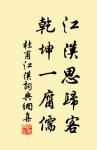 江漢思歸客
乾坤一腐儒
杜甫江漢詞典網集